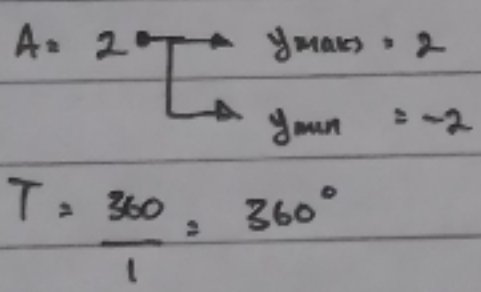 A = 2 → y maks = 2
→ y min = -2
T = 360/1 = 360°